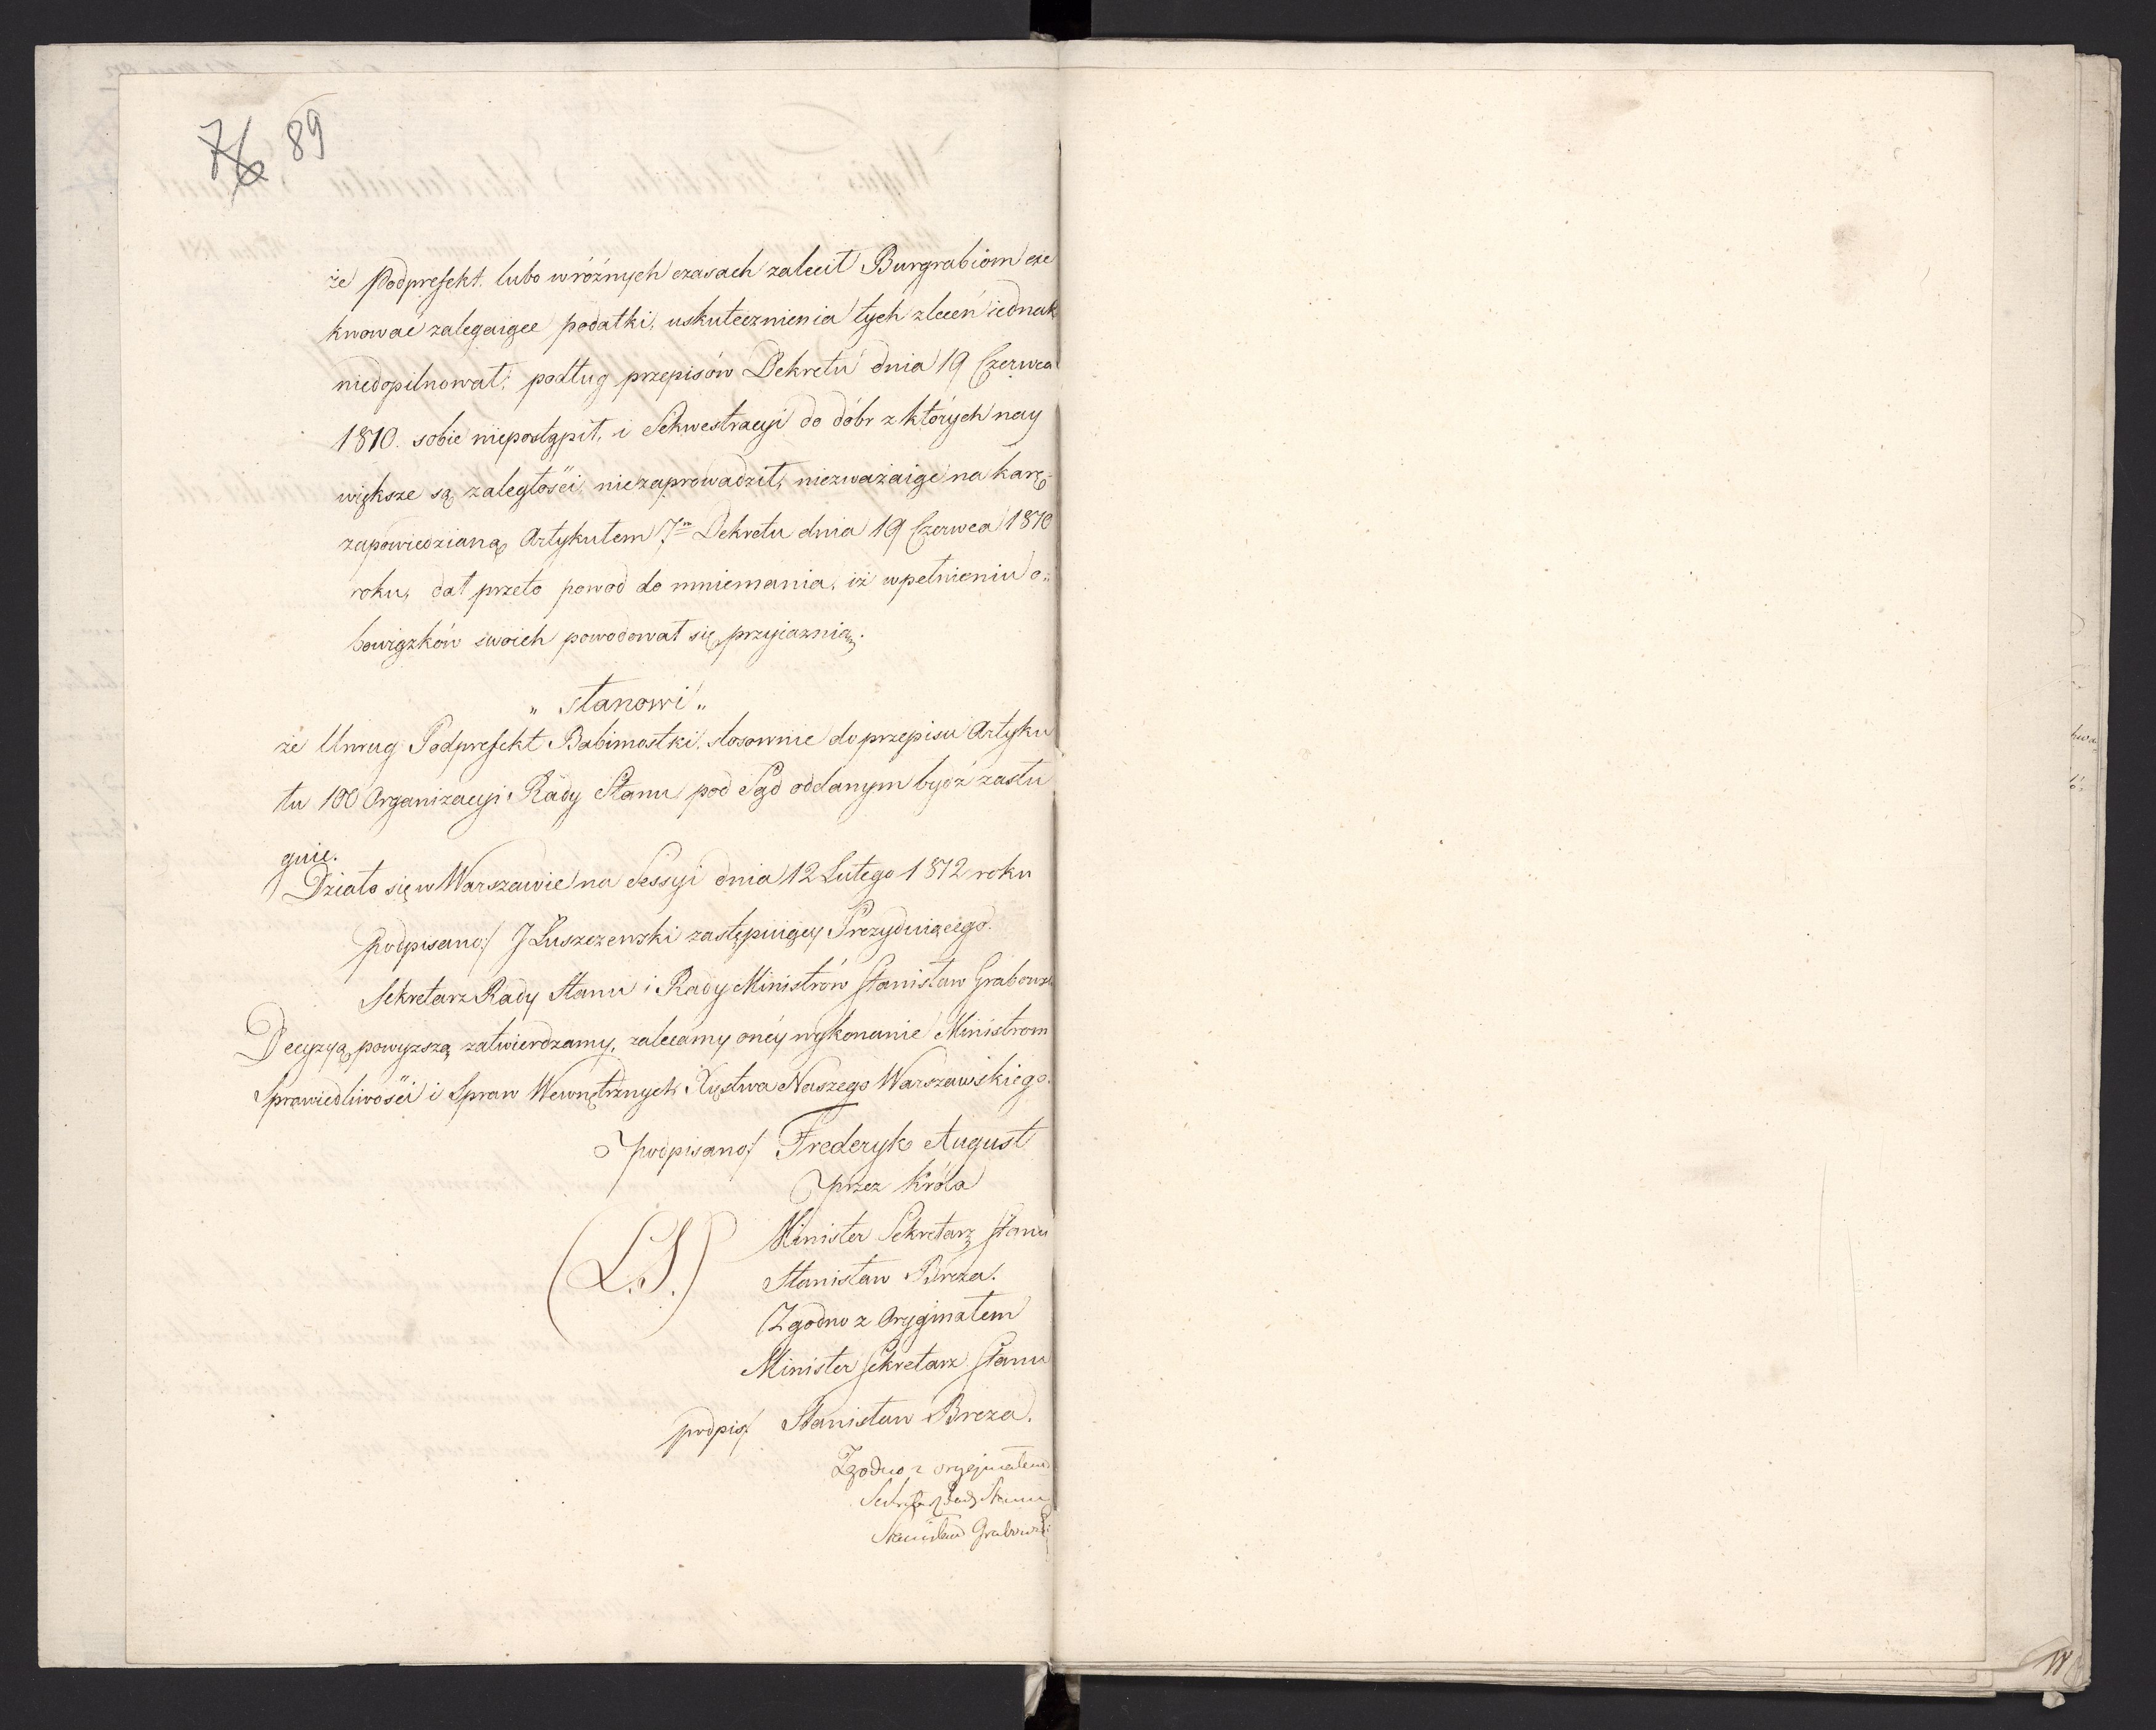 76 89
że Podprefekt. lubo w różnych czasach zalecił Burgrabiom exe
kwować zalegaiące podatki, uskutecznienia tych zleceń iednak
niedopilnował, podług przepisów Dekretu dnia 19 Czerwca
1810. sobie niepostąpił, i Sekwestracyi do dóbr z których nay
większe są zaległości, niezaprowadził, niezważaiąc na karę
zapowiedzianą Artykułem 7m Dekretu dnia 19 Czerwca 1810
roku, dał przeto powod do mniemania, iż w pełnieniu o=
bowiązków swoich powodował się przyiaznią.
„ Stanowi „
że Unrug Podprefekt Babimostki, stosownie do przepisu Artyku
łu 100 Organizacyi Rady Stanu pod Sąd oddanym bydź zasłu
guie.
Działo się w Warszawie na Sessyi dnia 12 Lutego 1812 roku
podpisano/ J Łuszczewski zastępuiący Prezyduiącego.
Sekretarz Rady Stanu i Rady Ministrów Stanisław Grabowski
Decyzyą powyższą zatwierdzamy, zalecamy oney wykonanie Ministrom
Sprawiedliwości i Spraw Wewnętrznych Xięstwa Naszego Warszawskiego.
podpisano/ Frederyk August
przez Króla
Minister Sekretarz Stanu
(L.S.) Stanisław Breza.
Zgodno z Oryginałem
Minister Sekretarz Stanu
podpis/ Stanisław Breza.
Zgodno z oryginałem
Sekretarz Rady Stanu
Stanisław Grabowski